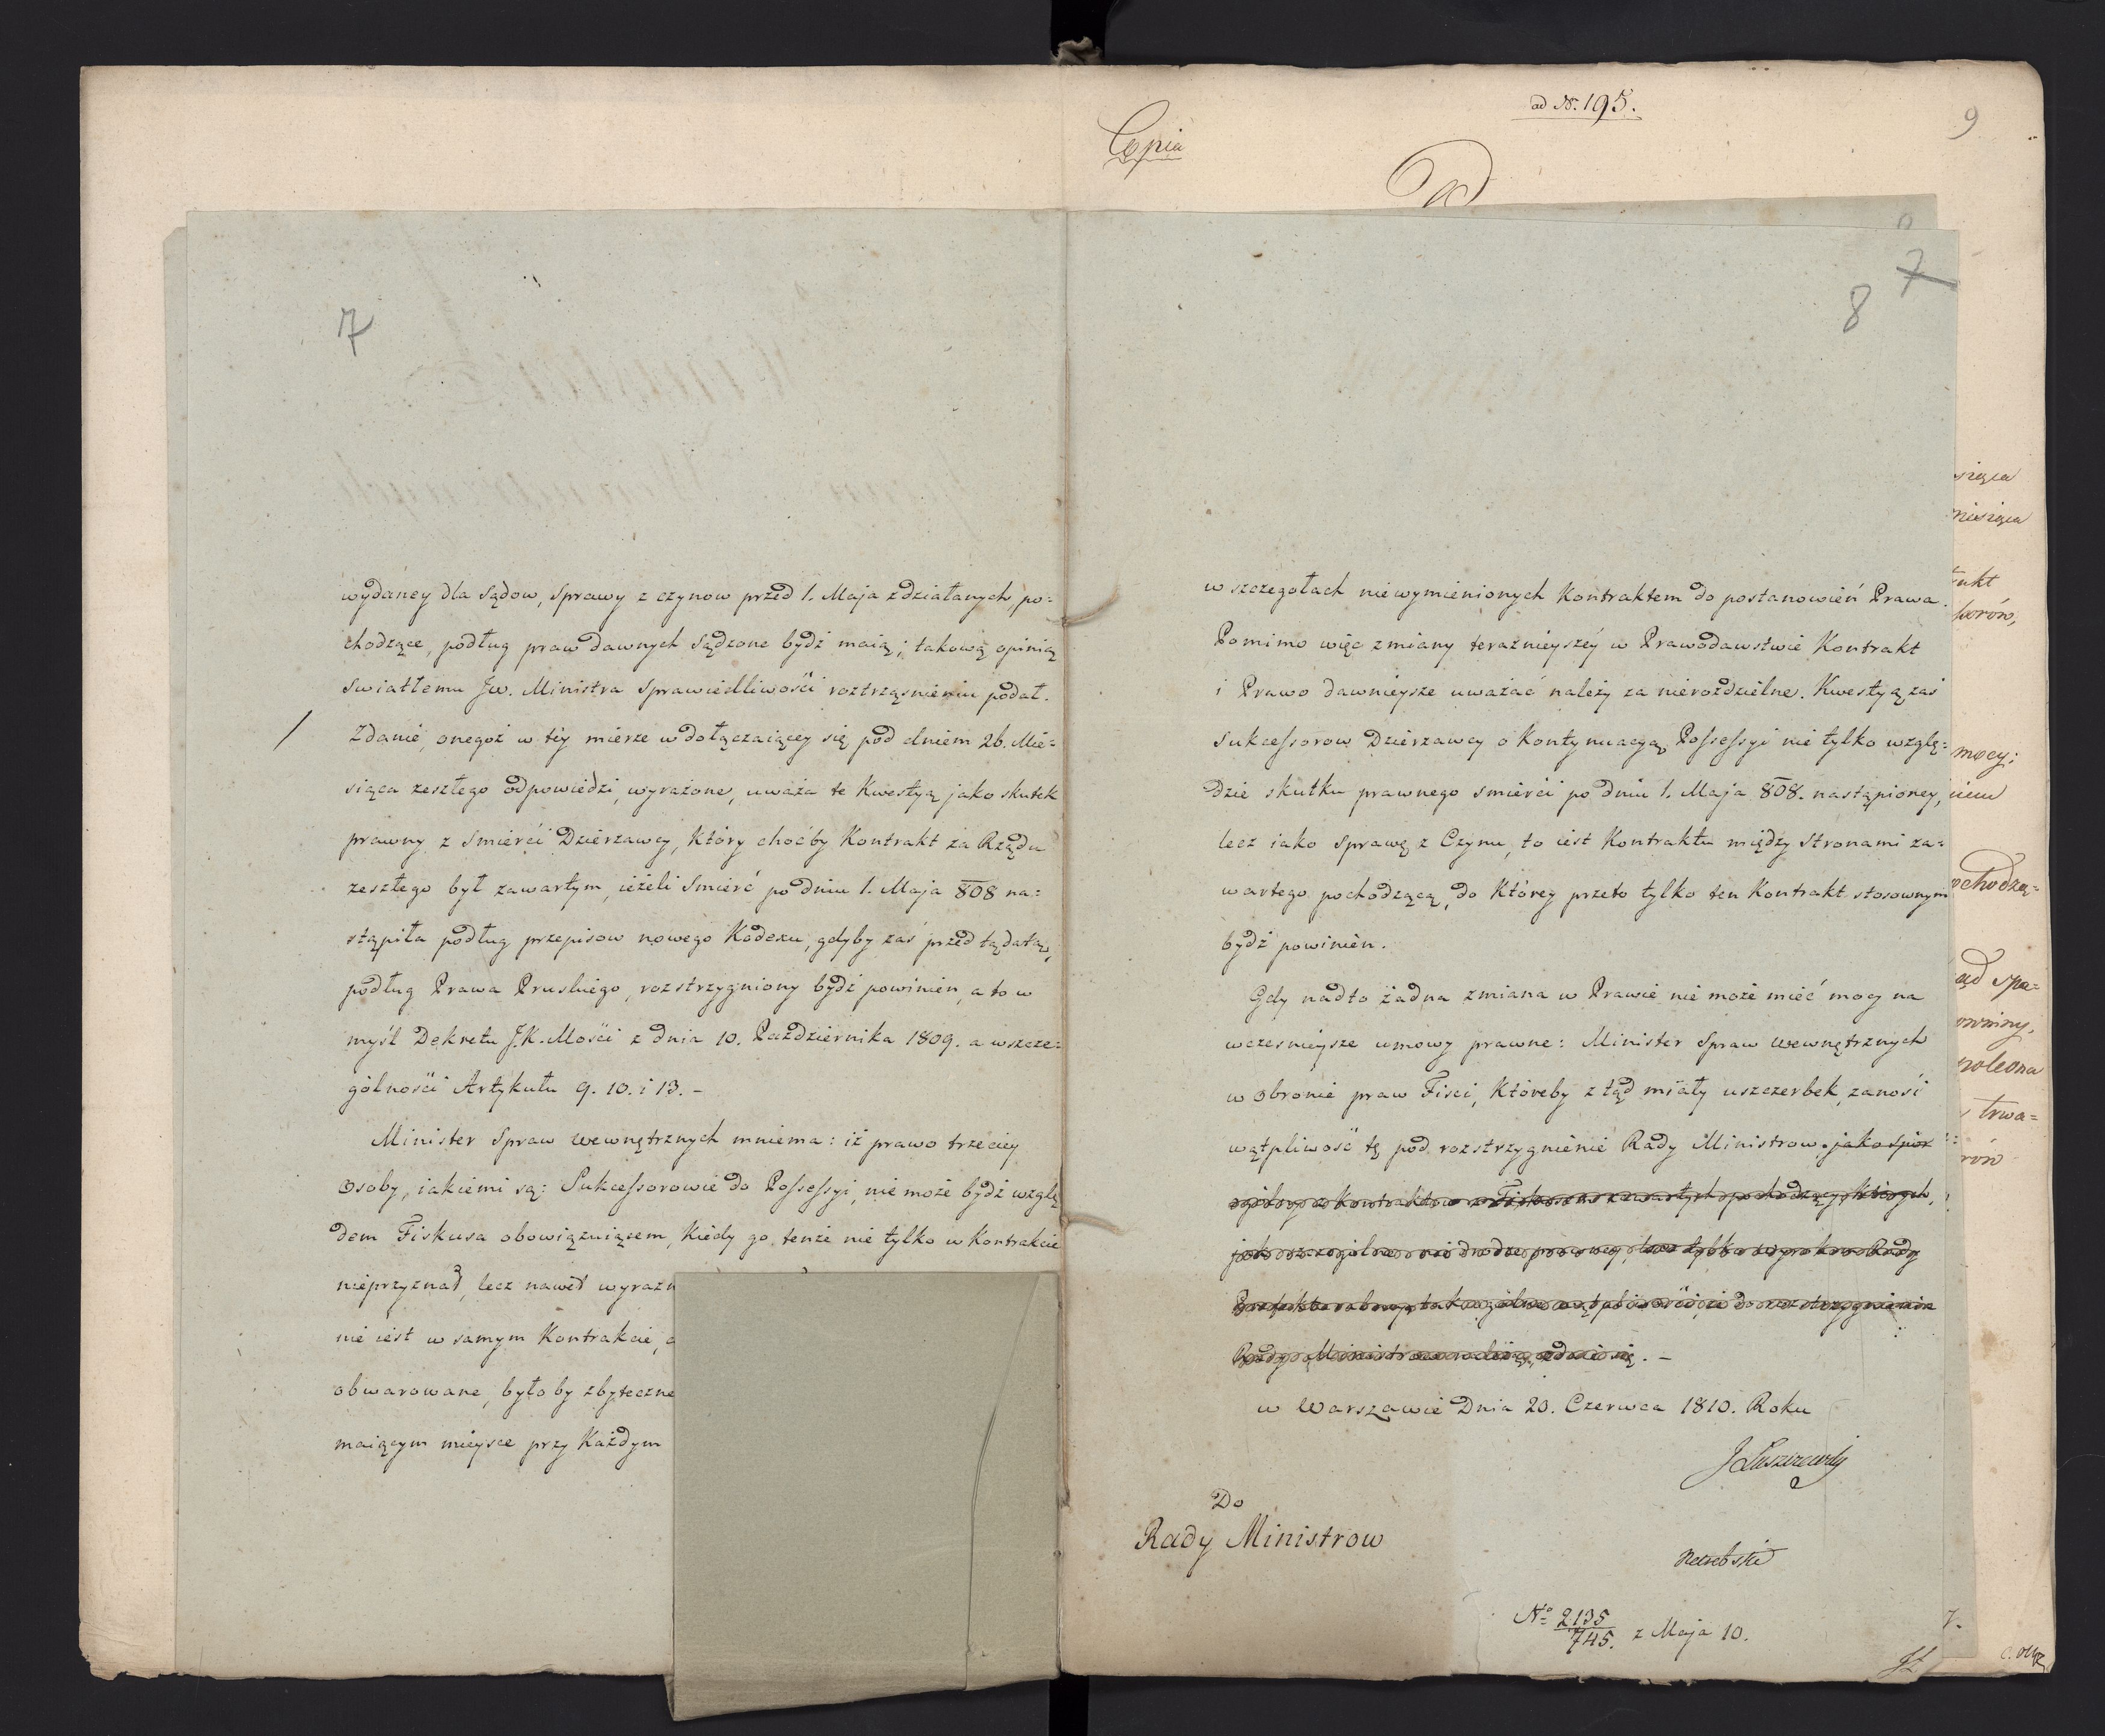 7
wydaney dla Sądow, Sprawy z czynow przed 1. Maja zdziałanych po=
chodzące, podług praw dawnych Sądzone bydź maią; takową opinią
Swiatłemu Jw. Ministra Sprawiedliwości roztrząsnieniu podał.
Zdanie, onegoż w tey mierze w dołączaiącey się pod dniem 26. Mie=
siąca zeszłego odpowiedzi, wyrażone, uważa te Kwestyą jako skutek
prawny z Smierći Dzierzawcy, Który choćby Kontrakt za Rządu
zeszłego był zawartym, ieżeli Smierć po dniu 1. Maja 808 na=
stąpiła podług przepisow nowego Kodexu, gdyby zaś przed tą datą,
podług Prawa Pruskiego, rozstrzygniony bydź powinien, a to w
myśl Dekretu J.K. Mości z dnia 10. Października 1809. a wszcze=
gólności Artykułu 9. 10. i 13. –
Minister Spraw wewnętrznych mniema: iż prawo trzeciey
Osoby, iakiemi są: Sukcessorowie do Possessyi, nie może bydź wzglę
dem Fiskusa obowięzuiącem, Kiedy go tenże nie tylko w Kontrakcie
nieprzyznał, lecz nawet wyraźn
nie iest w samym Kontrakcie,
obwarowane, było by zbyteczne
maiącym mieysce przy Każdym
Copia
ad N. 195.
9
7
8
w szczegołach niewymienionych Kontraktem do postanowień Prawa.
Pomimo więc zmiany teraźnieyszéy w Prawodawstwie Kontrakt
i Prawo dawnieysze uważać należy za nierozdzielne. Kwestyą zaś
Sukcessorow Dzierzawcy o Kontynuacyą Possessyi nie tylko wzglę=
dzie skutku prawnego smierći po dniu 1. Maja 808. nastąpioney,
lecz iako Sprawę z Czynu, to iest Kontraktu między Stronami za=
wartego pochodzącą, do Którey przeto tylko ten Kontrakt stosownym
bydź powinien.
Gdy nadto żadna zmiana w Prawie nie może mieć mocy na
wcześnieysze umowy prawne: Minister Spraw wewnętrznych
w obronie praw Fisci, Któreby z tąd miały uszczerbek, zanosi
wątpliwość tę pod rozstrzygnienie Rady Ministrow. jako spór
w Warszawie Dnia 20. Czerwca 1810. Roku
J Łuszczewski
Do
Rady Ministrow
No 2135/745. z Maja 10.
siąca
miesiąca
mocy;
ochodzą=
ąd spa=
trwa=